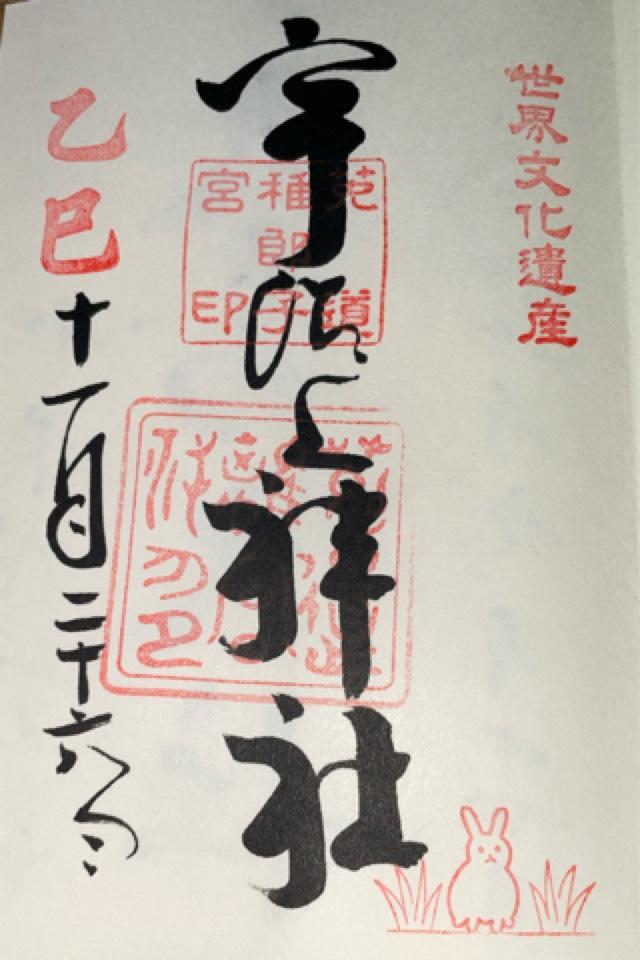 世界文化遺産
宇治上神社
菟道
稚郎子
宮印
乙巳十一月二十六日